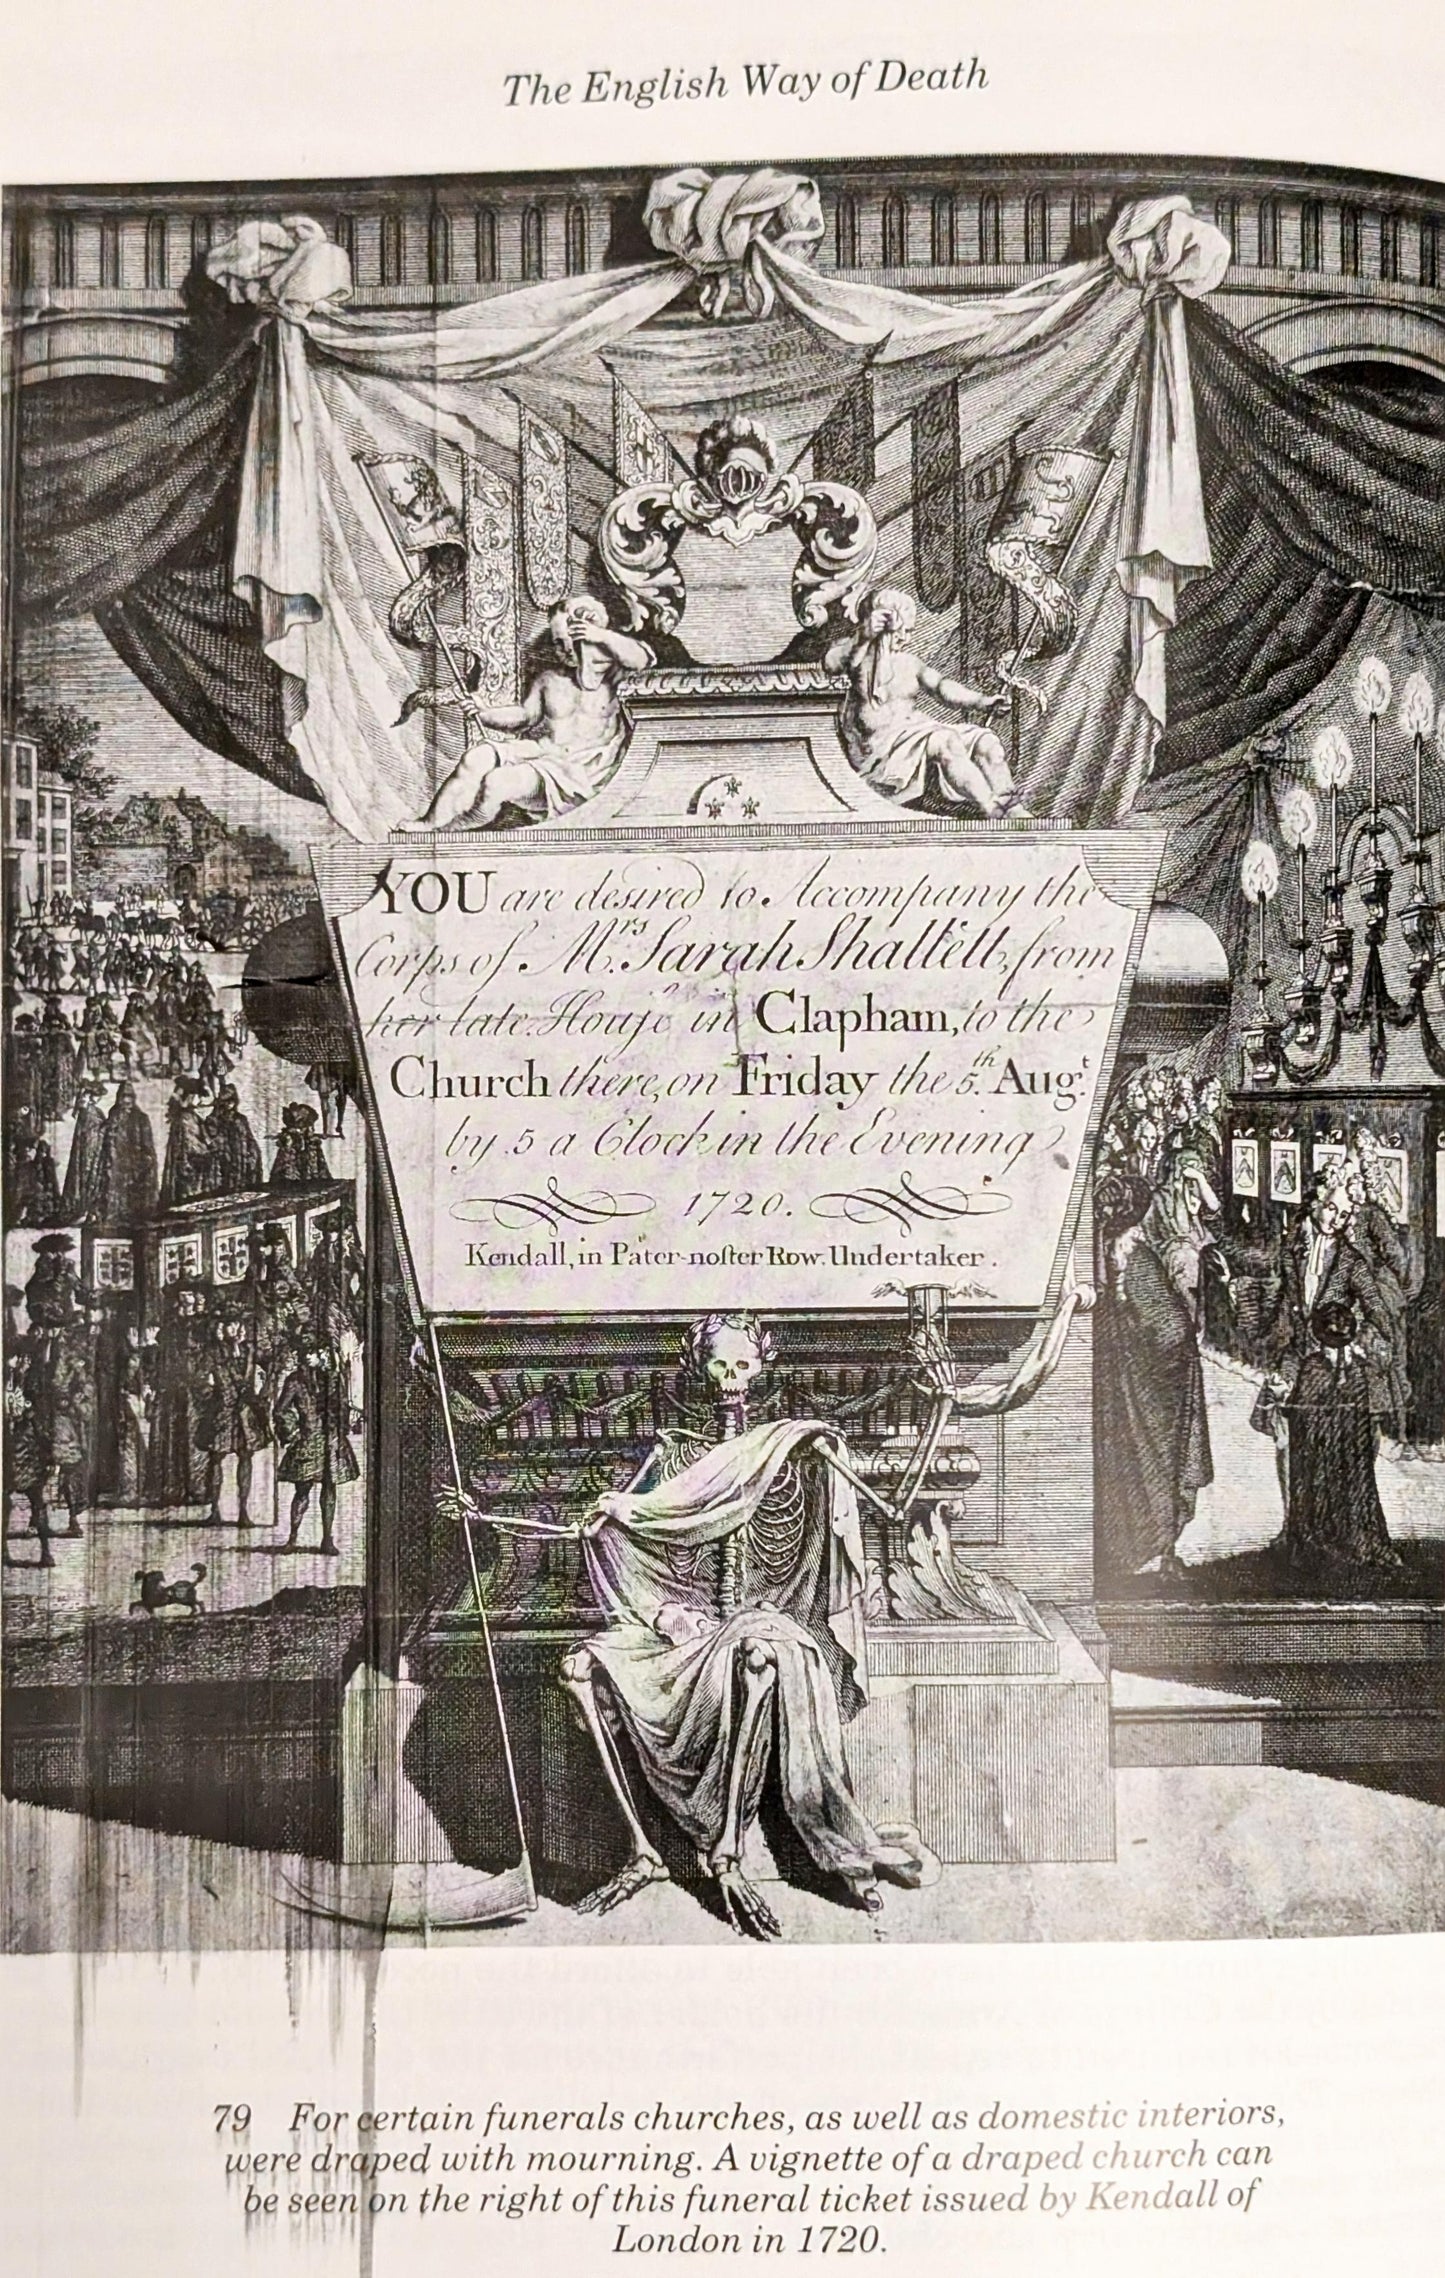 The English Way of Death
YOU are desired to Accompany the
Corps of Mrs. Sarah Shallett, from
her late House in Clapham, to the
Church there, on Friday the 5.th Aug.t
by 5 a Clock in the Evening
1720.
Kendall, in Pater-noſter Row. Undertaker.
79 For certain funerals churches, as well as domestic interiors,
were draped with mourning. A vignette of a draped church can
be seen on the right of this funeral ticket issued by Kendall of
London in 1720.